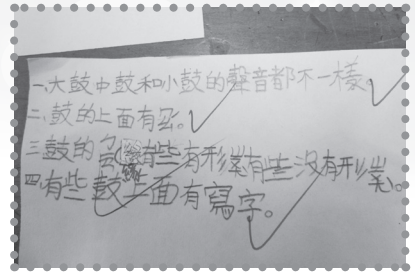 一、大鼓中鼓和小鼓的聲音都不一樣。
二、鼓的上面有
三、鼓的有些有形狀有些沒有形狀。
四、有些鼓上面有寫字。